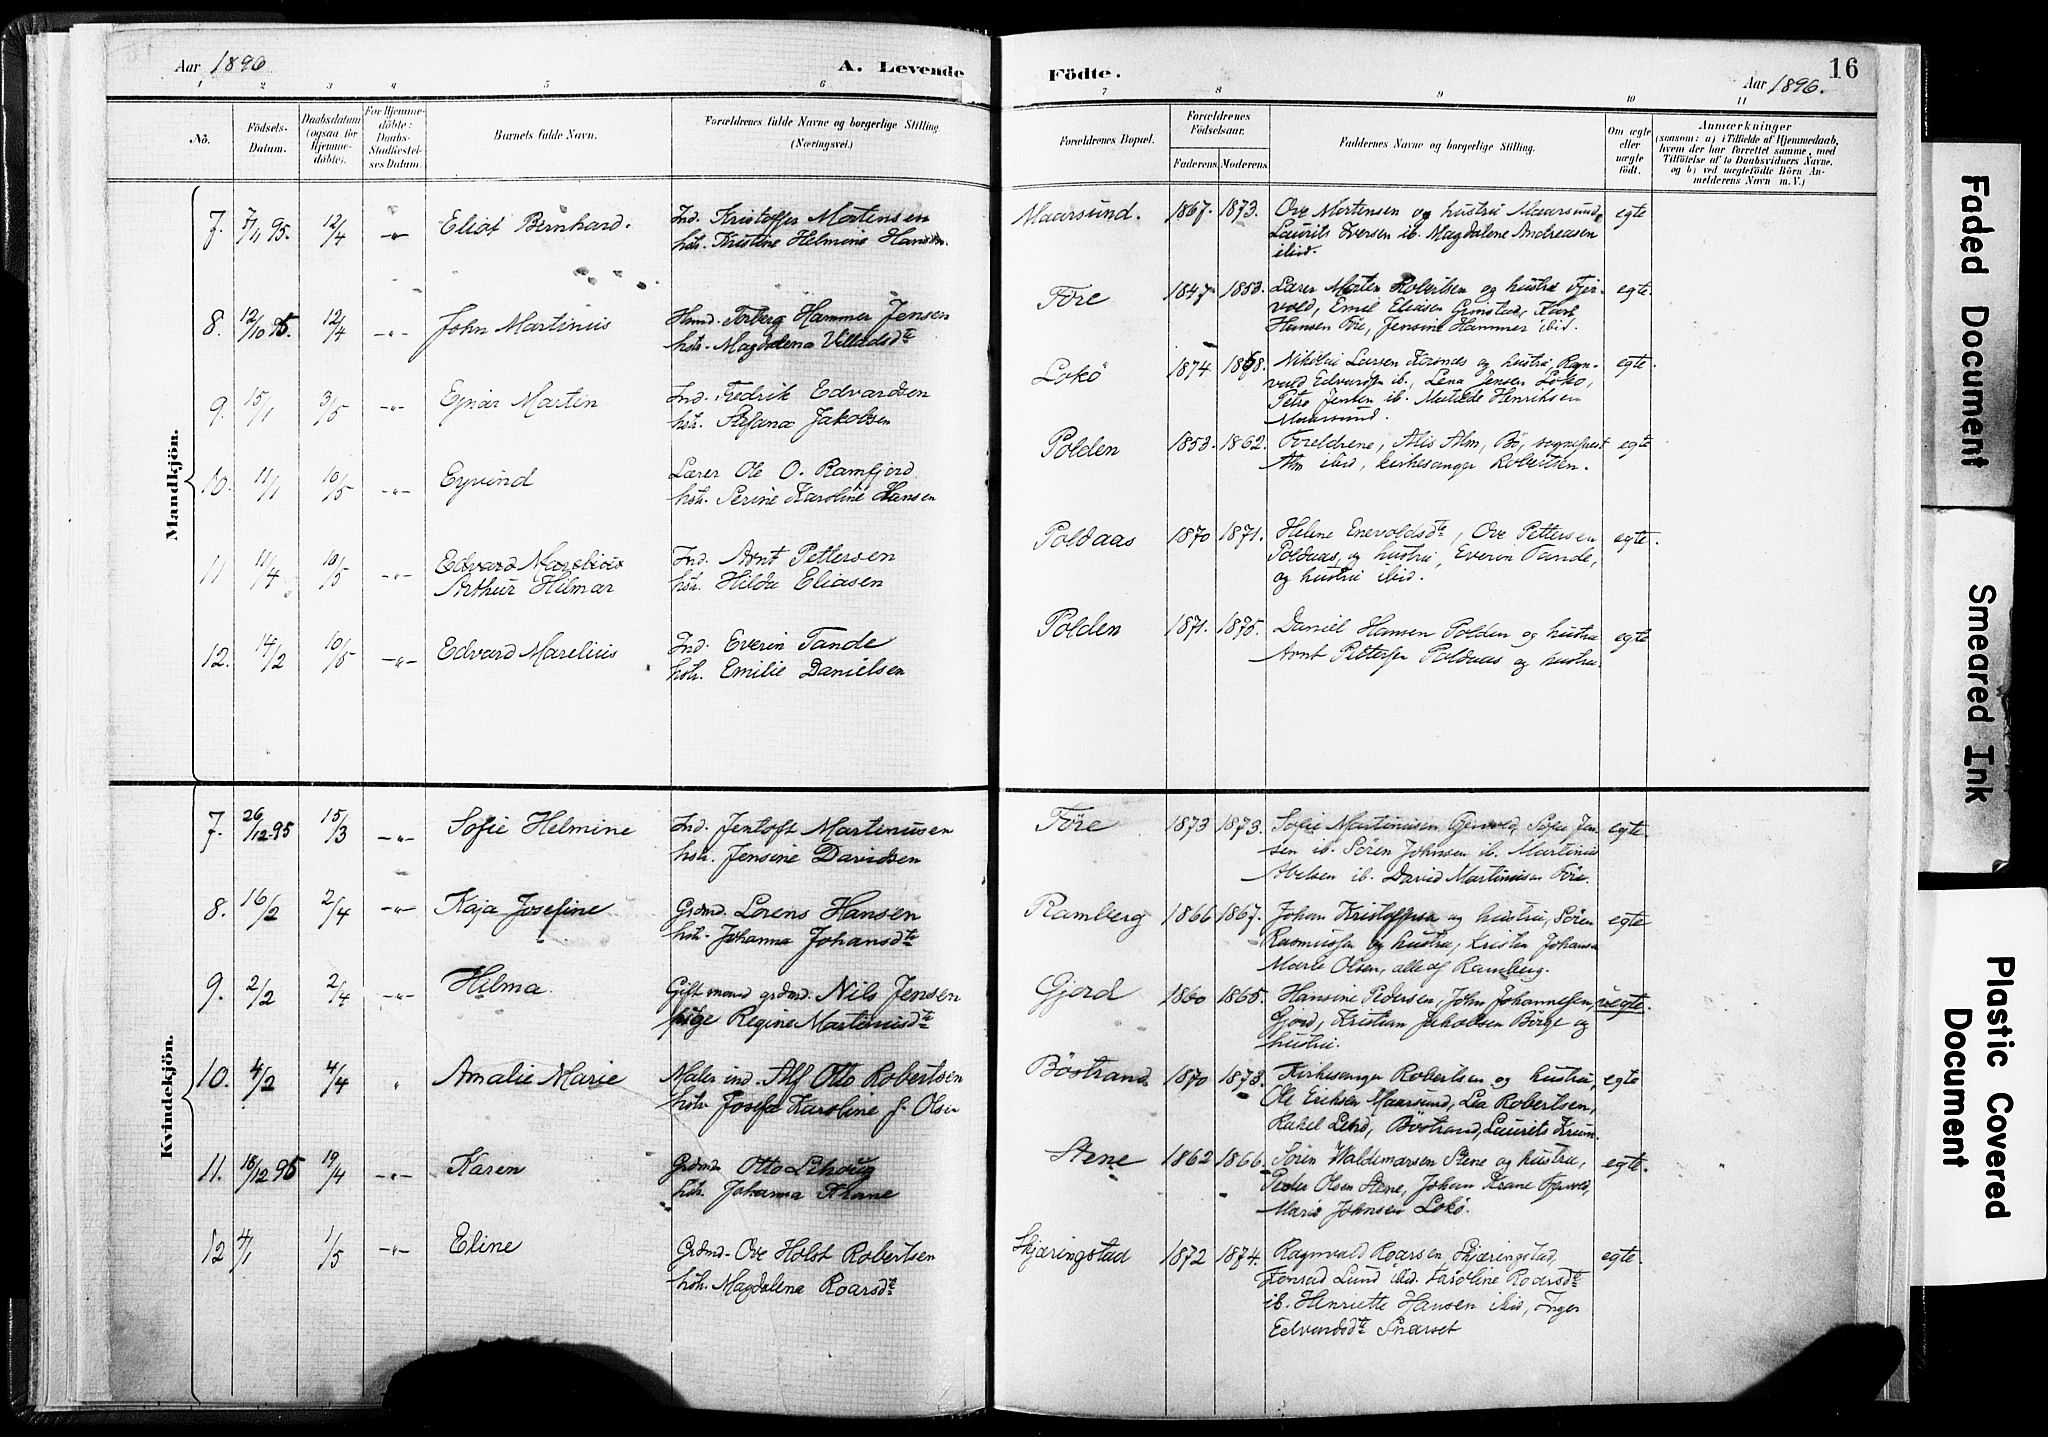 Aar 1896
A. Levende
Födte.
Aar 1896.
16
1 2 3 4 5 6 7 8 9 10 11
No.
Födsels-
Datum.
Daabsdatum
(ogsaa for
Hjemme-
døbte).
For Hjemme-
døbte:
Daabs-
Stadfæstel-
ses Datum.
Barnets fulde Navn.
Forældrenes fulde Navne og borgerlige Stilling.
(Næringsvei.)
Forældrenes Bopæl.
Forældrenes
Födselsaar.
Faderens. Moderens.
Faddernes Navne og borgerlige Stilling.
Om ægte
eller
uægte
født.
Anmærkninger
(saasom: a) i Tilfælde af Hjemmedaab,
hvem der har forrettet samme, med
Tilføielse af to Daabsvidners Navne,
og b) ved uegtefødte Börn An-
melderens Navn m. V.)
Mandkjön.
7. 7/11 95. 12/4 -"- Eliot Bernhard. Ind. Kristoffer Mortensen
hst. Kristine Helmine Hansen.
Maarsund. 1867. 1873. Ove Mortensen og hustru Maarsund,
Laurits Iversen ib. Magdalene Andreasen
ibid.
egte
8. 12/10 95. 12/4 -"- John Martinus Hand. Torberg Hammer Jensen
hstr. Magdalena Villadsdtr
Före 1847 1853. Lærer Morten Robertsen og hustru Fjer-
vold, Emil Eliasen Grimstad,
Hansen Före, Jensine Hammer ibid.
egte
9. 15/1 3/5 -"- Ejnar Martin Ind. Fredrik Edvardsen
hst. Stefana Jakobsen
Lokö 1874 1868. Nikolai Larsen og hustru, Ragn-
vald Edvardsen ib., Lena Jensen Lokö,
Petra Jensen ib. Matilde Henriksen
Maarsund.
egte.
10. 11/1 10/5 -"- Eyvind Lærer Ole O. Ramfjord
hstr. Serine Karoline Hansen
Polden 1853. 1862. Foreldrene, Alm, Bö, sogneprest
Alm ibid, kirkesanger Robertsen.
egte
11 11/4 10/5 -"- Edvard Marelius
Arthur Hilmar
Ind. Arnt Pettersen
hst. Hilda Eliasen
Poldaas 1870 1871. Helene Enevoldsdtr, Ove Pettersen
Poldaas og hustru, Everin Tande,
og hustru ibid.
egte.
12. 14/2 10/5 -"- Edvard Marelius Ind. Everin Tande
hstr. Emilie Danielsen
Polden 1871. 1875. Daniel Hansen Polden og hustru
Arnt Pettersen Poldaas og hustru.
egte
Kvindekjön.
7. 26/12-95 15/3 -"- Sofie Helmine Ind. Jentoft Martinusen
hstr. Jensine Davidsen
Före 1873 1873. Sofie Martinusen Gjervold, Sofie Jen-
sen ib. Sören Johnsen ib. Martinus
Abelsen ib. David Martinusen Före.
egte
8. 16/2 2/4 -"- Kaja Josefine Grdmd. Lorens Hansen
hst. Johanna Johansdtr
Ramberg 1866 1867. Johan Kristoffersen og hustru, Sören
Rasmussen og hustru, Kristen Johansen
Marte Olsen, alle af Ramberg.
egte
9. 2/2 2/4 -"- Hilma. Gift mand grdmd. Nils Jensen
pige Regine Martinusdtr
Gjord 1860 1865. Hansine Pedersen, John Johannesen,
Gjord, Kristian Jakobsen Börge og
hustru.
uegte.
10. 4/2 4/4 " Amalie Marie Maler ind. Alf Otto Robertsen
hstr Josefa Karoline f. Olsen
Böstrand 1870 1873. Kirkesanger Robertsen og hustru,
Ole Eriksen Maarsund, Lea Robertsen,
Rakel Lind, Böstrand, Laurits
egte
11. 18/12 95 19/4 -"- Karen Grdmd Otto Lihoug
hst. Johanna Krane
Stene 1862 1866. Sören Waldemarsen Stene og hustru,
Peder Olsen Stene, Johan Krane Fjervold,
Marie Johnsen Lokö.
egte.
12 4/1 1/5 -"- Eline Grdmd. Ove Holst Robertsen
hst. Magdalena Roarsdtr
Skjæringstad 1872 1874. Ragnvald Roarsen Skjæringstad,
Konrad Lund ibid. Karoline Roarsdtr
ib. Henriette Hansen ibid, Inger
Edvardsdtr Snarset
egte.
Faded Document
Smeared Ink
Plastic Covered
Document